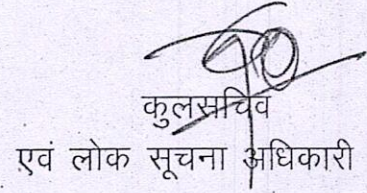 कुलसचिव
एवं लोक सूचना अधिकारी